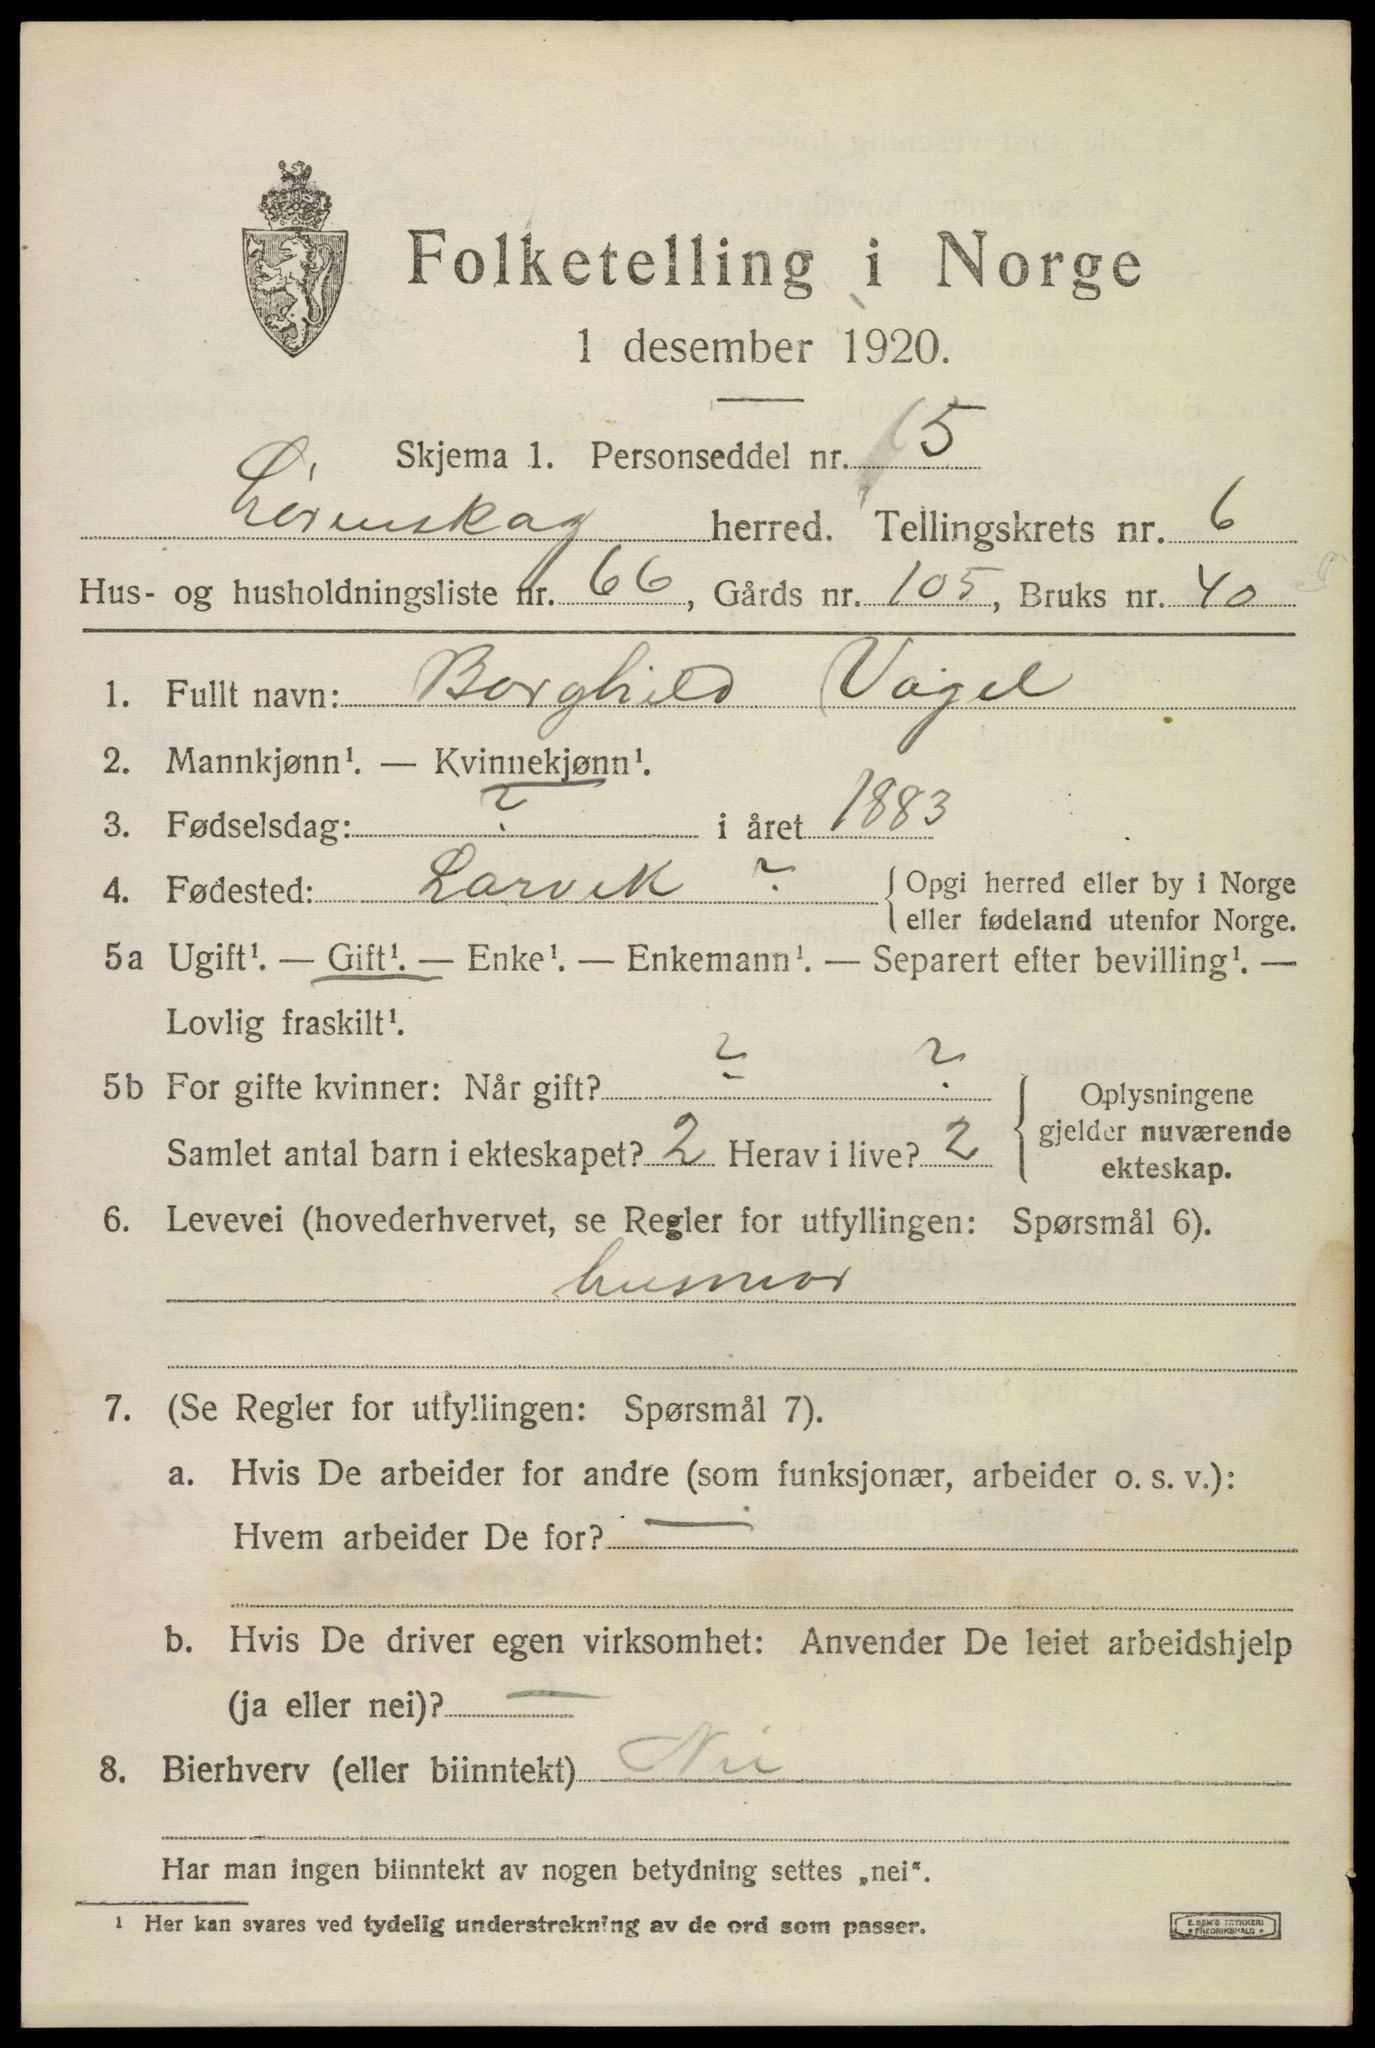 Folketelling i Norge
1 desember 1920.
Skjema 1. Personseddel nr. 5
Lørenskog herred. Tellingskrets nr. 6
Hus- og husholdningsliste nr. 66, Gårds nr. 105, Bruks nr. 40
1. Fullt navn: Borghild Vagel
2. Mannkjønn¹. — Kvinnekjønn¹.
3. Fødselsdag: ? i året 1883
4. Fødested: Larvik ? { Opgi herred eller by i Norge
eller fødeland utenfor Norge.
5a Ugift¹. — Gift¹. — Enke¹. — Enkemann¹. — Separert efter bevilling¹. —
Lovlig fraskilt¹.
5b For gifte kvinner: Når gift? ? ? { Oplysningene
gjelder nuværende
ekteskap.
Samlet antal barn i ekteskapet? 2 Herav i live? 2
6. Levevei (hovederhvervet, se Regler for utfyllingen: Spørsmål 6).
husmor
7. (Se Regler for utfyllingen: Spørsmål 7).
a. Hvis De arbeider for andre (som funksjonær, arbeider o. s. v.):
Hvem arbeider De for? —
b. Hvis De driver egen virksomhet: Anvender De leiet arbeidshjelp
(ja eller nei)? —
8. Bierhverv (eller biinntekt) Nei
Har man ingen biinntekt av nogen betydning settes „nei“.
¹ Her kan svares ved tydelig understrekning av de ord som passer.
E. SEM'S TRYKKERI
FREDRIKSHALD